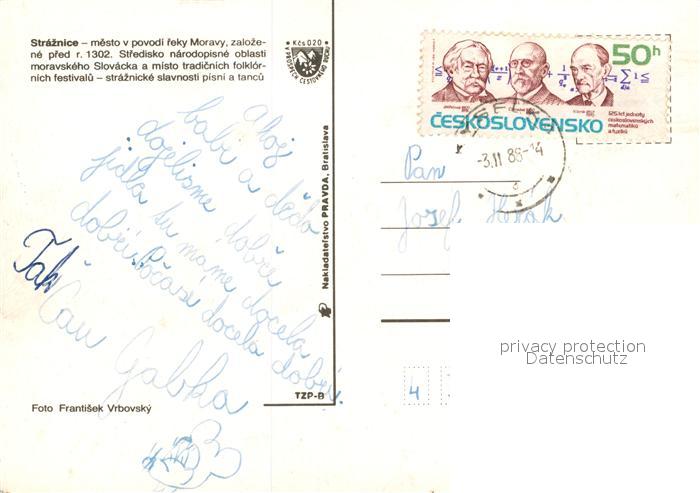 Strážnice – město v povodí řeky Moravy, založe-
né před r. 1302. Středisko národopisné oblasti
moravského Slovácka a místo tradičních folklór-
ních festivalů – strážnické slavnosti písní a tanců
Kčs 0,20
V PROSPĚCH CESTOVNÉHO RUCHU
50h
ČESKOSLOVENSKO
125 let jednoty
československých
matematiků
a fyziků
-3.11 88-14
Ahoj
babi a dědo
dojeli jsme dobře
jídla tu máme docela
dobré. Počasí docela dobré.
Tak
Čau Gabka
Pan
Josef
4
Nakladatelství PRAVDA, Bratislava
TZP-B
Foto František Vrbovský
privacy protection
Datenschutz